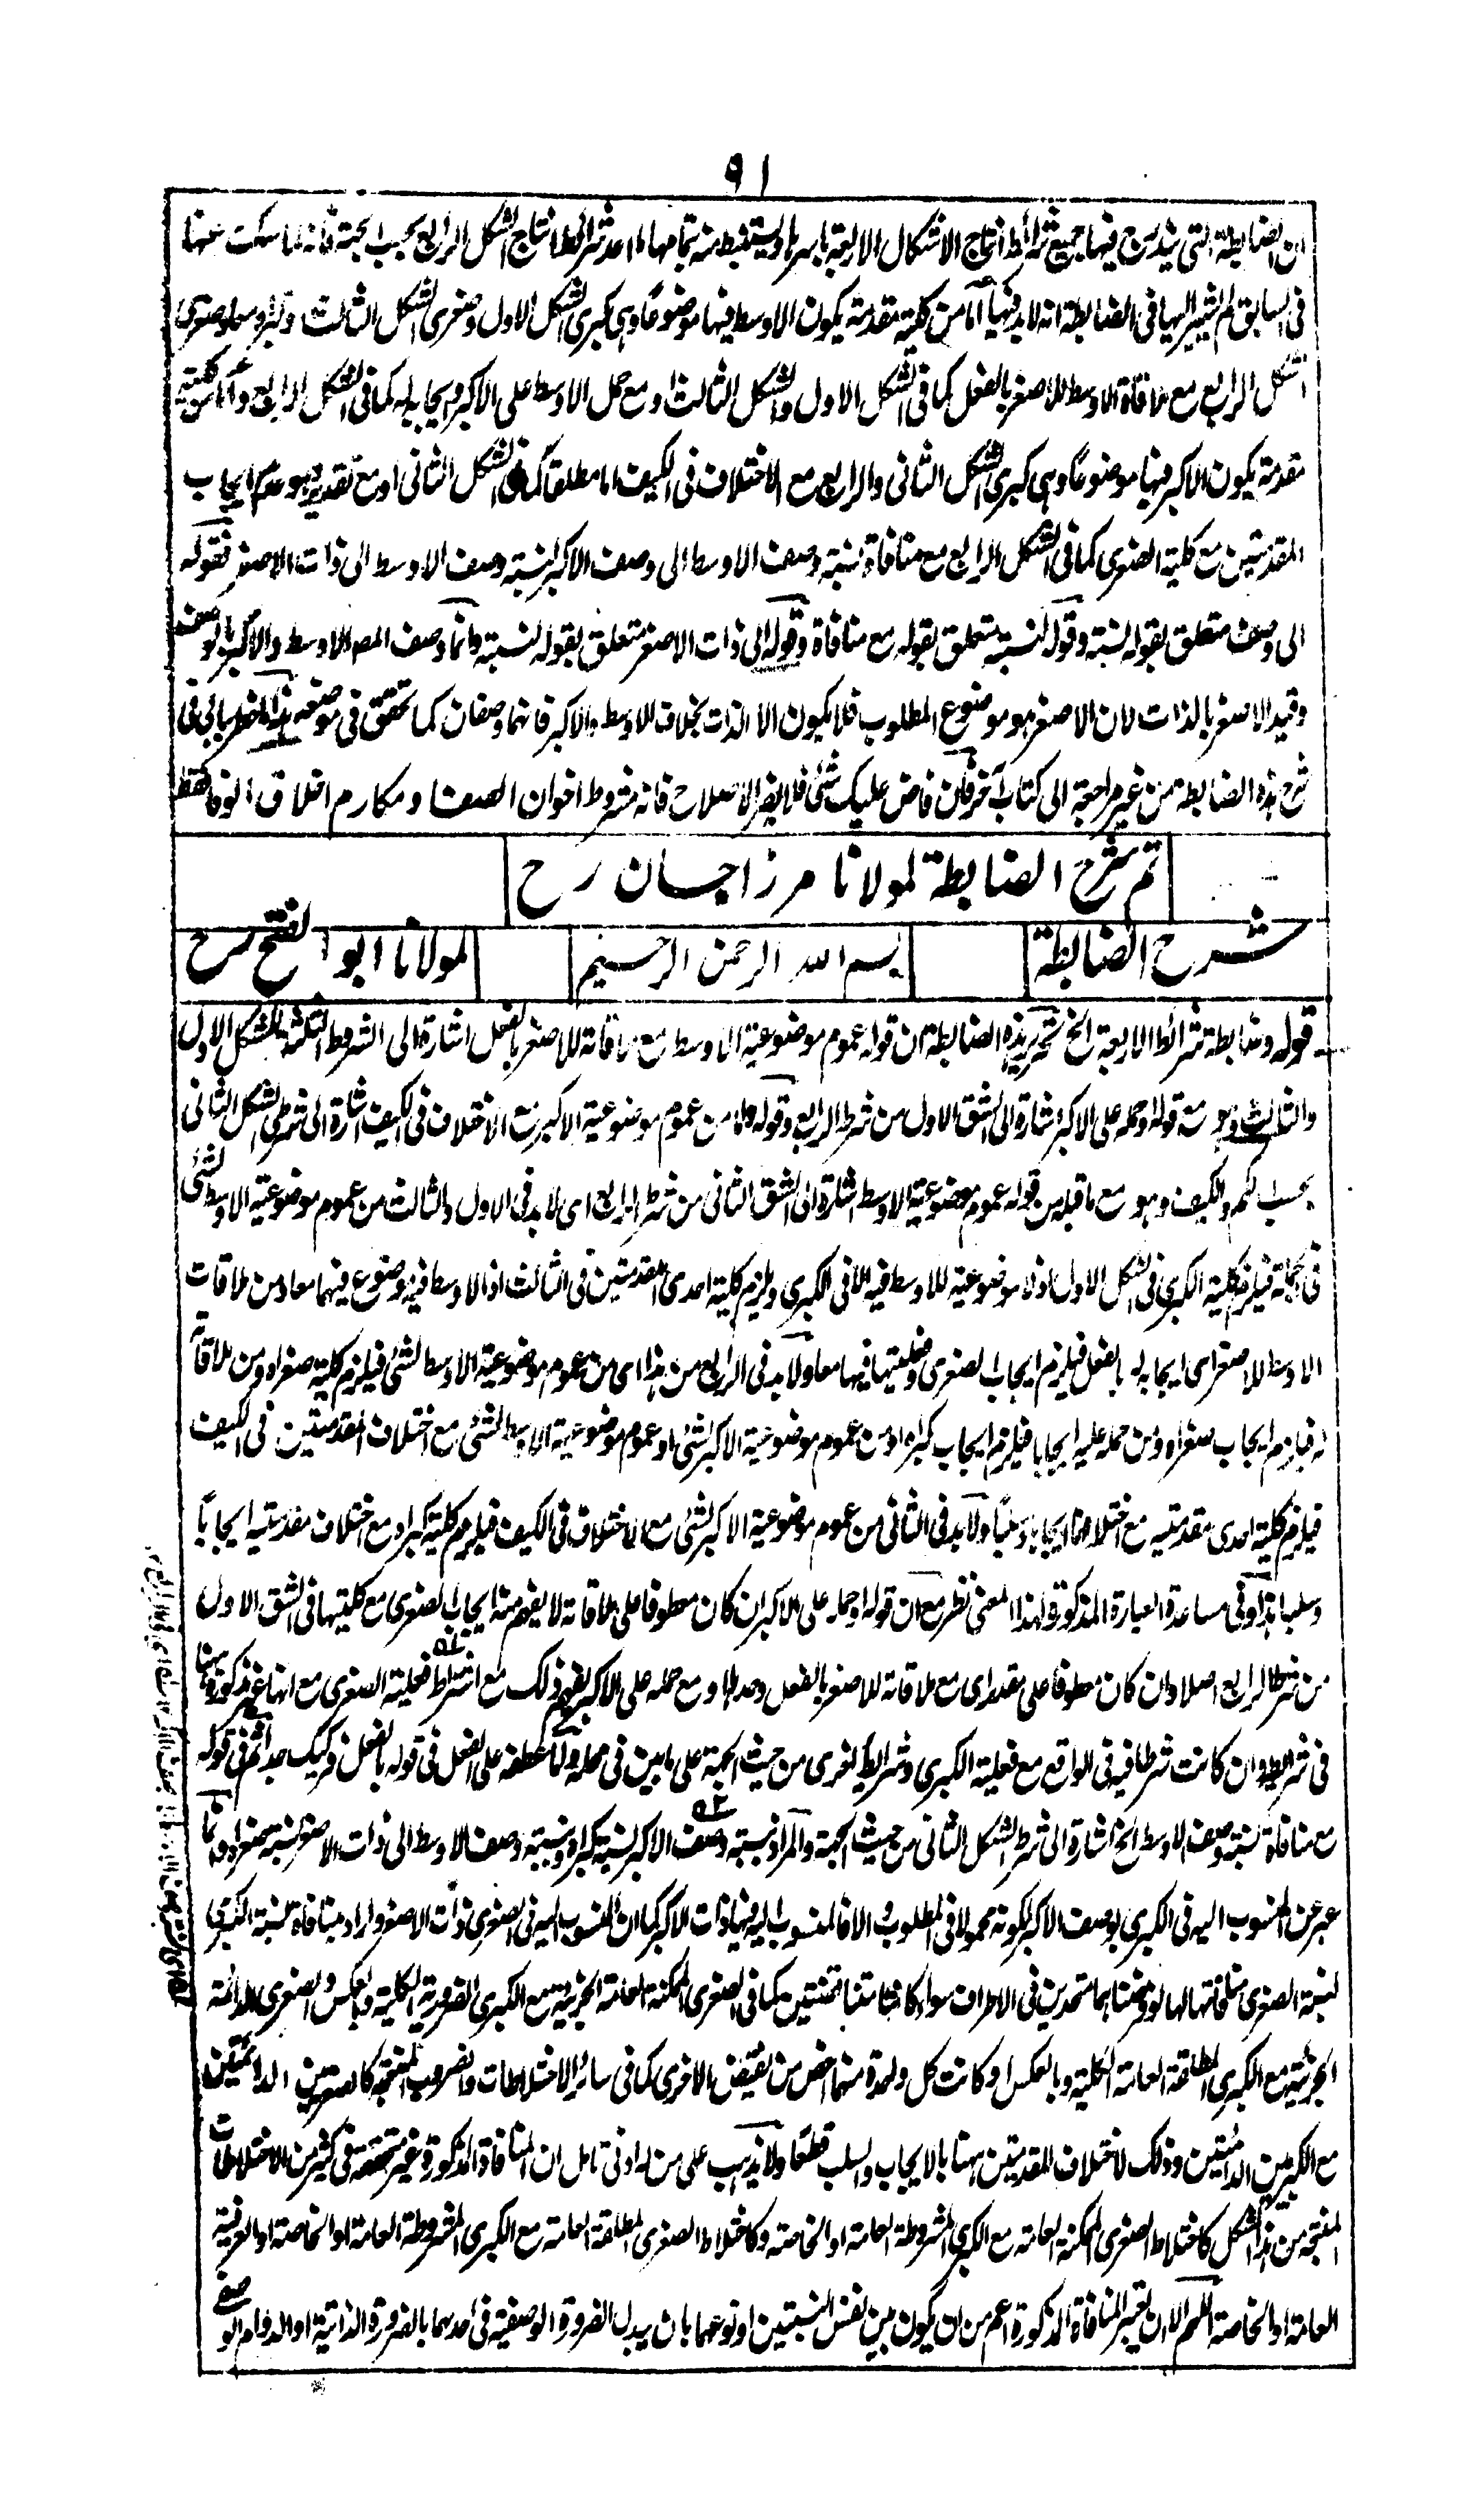 ٩١
ان الضابطة التى يندرج فيها جميع شرائط انتاج الاشكال الاربعة باسرها ويستنبط منه تمامها ما عد شرائط انتاج الشكل الرابع بحسب الجهة فانه لما سكت عنها
فى السابق لم يشير اليها فى الضابطة انه لا بد فيها اما من كلية مقدمة يكون الاوسط فيها موضوعا وهى كبرى الشكل الاول وصغرى الشكل الثالث وكبراه معا وصغرى
الشكل الرابع مع ملاقاة الاوسط للاصغر بالفعل كما فى الشكل الاول والشكل الثالث او مع حمل الاوسط على الاكبر بايجابه كما فى الشكل الرابع واما من كلية
مقدمة يكون الاكبر فيها موضوعا وهى كبرى الشكل الثانى والرابع مع الاختلاف فى الكيف اما مطلقا كما فى الشكل الثانى او مع تقدير وهو عدم ايجاب
المقدمتين مع كلية الصغرى كما فى الشكل الرابع مع منافاة نسبة وصف الاوسط الى وصف الاكبر لنسبة وصف الاوسط الى ذات الاصغر فقوله
الى وصف متعلق بقوله نسبة وقوله لنسبة متعلق بقوله مع منافاة وقوله الى ذات الاصغر متعلق بقوله لنسبة وانما وصف المص الاوسط والاكبر بالوصف
وقيد الاصغر بالذات لان الاصغر هو موضوع المطلوب فلا يكون الا الذات بخلاف الاوسط والاكبر فانهما وصفان كما تحقق فى موضعه هذا ما خطر ببالى فى
شرح هذه الضابطة من غير مراجعة الى كتاب آخر فان فاض عليك شئ فلا يضر الاصلاح فانه مشروط اخوان الصفا ومكارم اخلاق الوفا فقط
تم شرح الضابطة لمولانا مرزاجان رح
شرح الضابطة
بسم الله الرحمن الرحيم
لمولانا ابو الفتح رح
قوله وضابطة شرائط الاربعة الخ تحرير هذه الضابطة ان قوله عموم موضوعية الاوسط مع ملاقاته للاصغر بالفعل اشارة الى الشروط الثلثة للشكل الاول
والثالث وهو مع قوله او حمله على الاكبر اشارة الى الشق الاول من شرط الرابع وقوله واما من عموم موضوعية الاكبر مع الاختلاف فى الكيف اشارة الى شرطى الشكل الثانى
بحسب الكم والكيف وهو مع ما قبله من قوله عموم موضوعية الاوسط اشارة الى الشق الثانى من شرط الرابع اى لا بد فى الاول والثالث من عموم موضوعية الاوسط لشئ
فى الجملة فيلزم كلية الكبرى فى الشكل الاول اذ لا موضوعية للاوسط فيه الا فى الكبرى ويلزم كلية احدى المقدمتين فى الثالث اذ الاوسط فيه موضوع فيهما معا ومن ملاقات
الاوسط للاصغر اى ايجابه له بالفعل فيلزم ايجاب الصغرى وفعليتها فيهما معا ولا بد فى الرابع من هذا اى من عموم موضوعية الاوسط لشئ فيلزم كلية صغراه ومن ملاقاته
له فيلزم ايجاب صغراه ومن حمله عليه ايجابا فيلزم ايجاب كبراه او من عموم موضوعية الاكبر لشئ او عموم موضوعية الاوسط لشئ مع اختلاف المقدمتين فى الكيف
فيلزم كلية احدى مقدمتيه مع اختلافهما ايجابا وسلبا ولا بد فى الثانى من عموم موضوعية الاكبر لشئ مع الاختلاف فى الكيف فيلزم كلية كبراه مع اختلاف مقدمتيه ايجابا
وسلبا هذا وفى مساعدة العبارة المذكورة لهذا المعنى نظر مع ان قوله او حمله على الاكبر ان كان معطوفا على ملاقاته لا يفهم منه ايجاب الصغرى مع كليتها فى الشق الاول
من شرط الرابع اصلا وان كان معطوفا على مقدر اى مع ملاقاته للاصغر بالفعل وحدها او مع حمله على الاكبر يفهم ذلك مع اشتراط فعلية الصغرى مع انها غير مذكورة هنا
فى شرائطه وان كانت شرطا فيه فى الواقع مع فعلية الكبرى وشرائط اخرى من حيث الجهة على ما بين فى محله واما عطفه على الفعل فى قوله بالفعل فركيك جدا ثم فى قوله
مع منافاة نسبة وصف الاوسط الخ اشارة الى شرط الشكل الثانى من حيث الجهة والمراد بنسبة وصف الاكبر نسبة كبراه وبنسبة وصف الاوسط الى ذات الاصغر نسبة صغراه وانما
عبر عن المنسوب اليه فى الكبرى بوصف الاكبر لكونه محمولا فى المطلوب والا فالمنسوب اليه فيها ذات الاكبر كما ان المنسوب اليه فى الصغرى ذات الاصغر واراد بمنافاة نسبة الكبرى
لنسبة الصغرى منافاتها لها لو فرضنا هما متحدين فى الاطراف سواء كانتا متناقضتين كما فى الصغرى الممكنة العامة الجزئية مع الكبرى الضرورية الكلية وبالعكس والصغرى الدائمة
الجزئية مع الكبرى المطلقة العامة الكلية وبالعكس او كانت كل واحدة منهما اخص من نقيض الاخرى كما فى سائر الاختلاطات والضروب المنتجة كالصغريين الدائمتين
مع الكبريين الدائمتين وذلك لاختلاف المقدمتين ههنا بالايجاب والسلب قطعا ولا يذهب على من له ادنى تامل ان المنافاة المذكورة غير متحققة فى كثير من الاختلاطات
المنتجة من هذا الشكل كاختلاط الصغرى الممكنة العامة مع الكبرى المشروطة العامة او الخاصة وكاختلاط الصغرى المطلقة العامة مع الكبرى المشروطة العامة او الخاصة او العرفية
العامة او الخاصة اللهم الا ان يعتبر المنافاة المذكورة اعم من ان يكون بين نفس النسبتين او نوعهما بان يبدل الضرورة الوصفية فى احدهما بالضرورة الذاتية او الدوام الوصفى